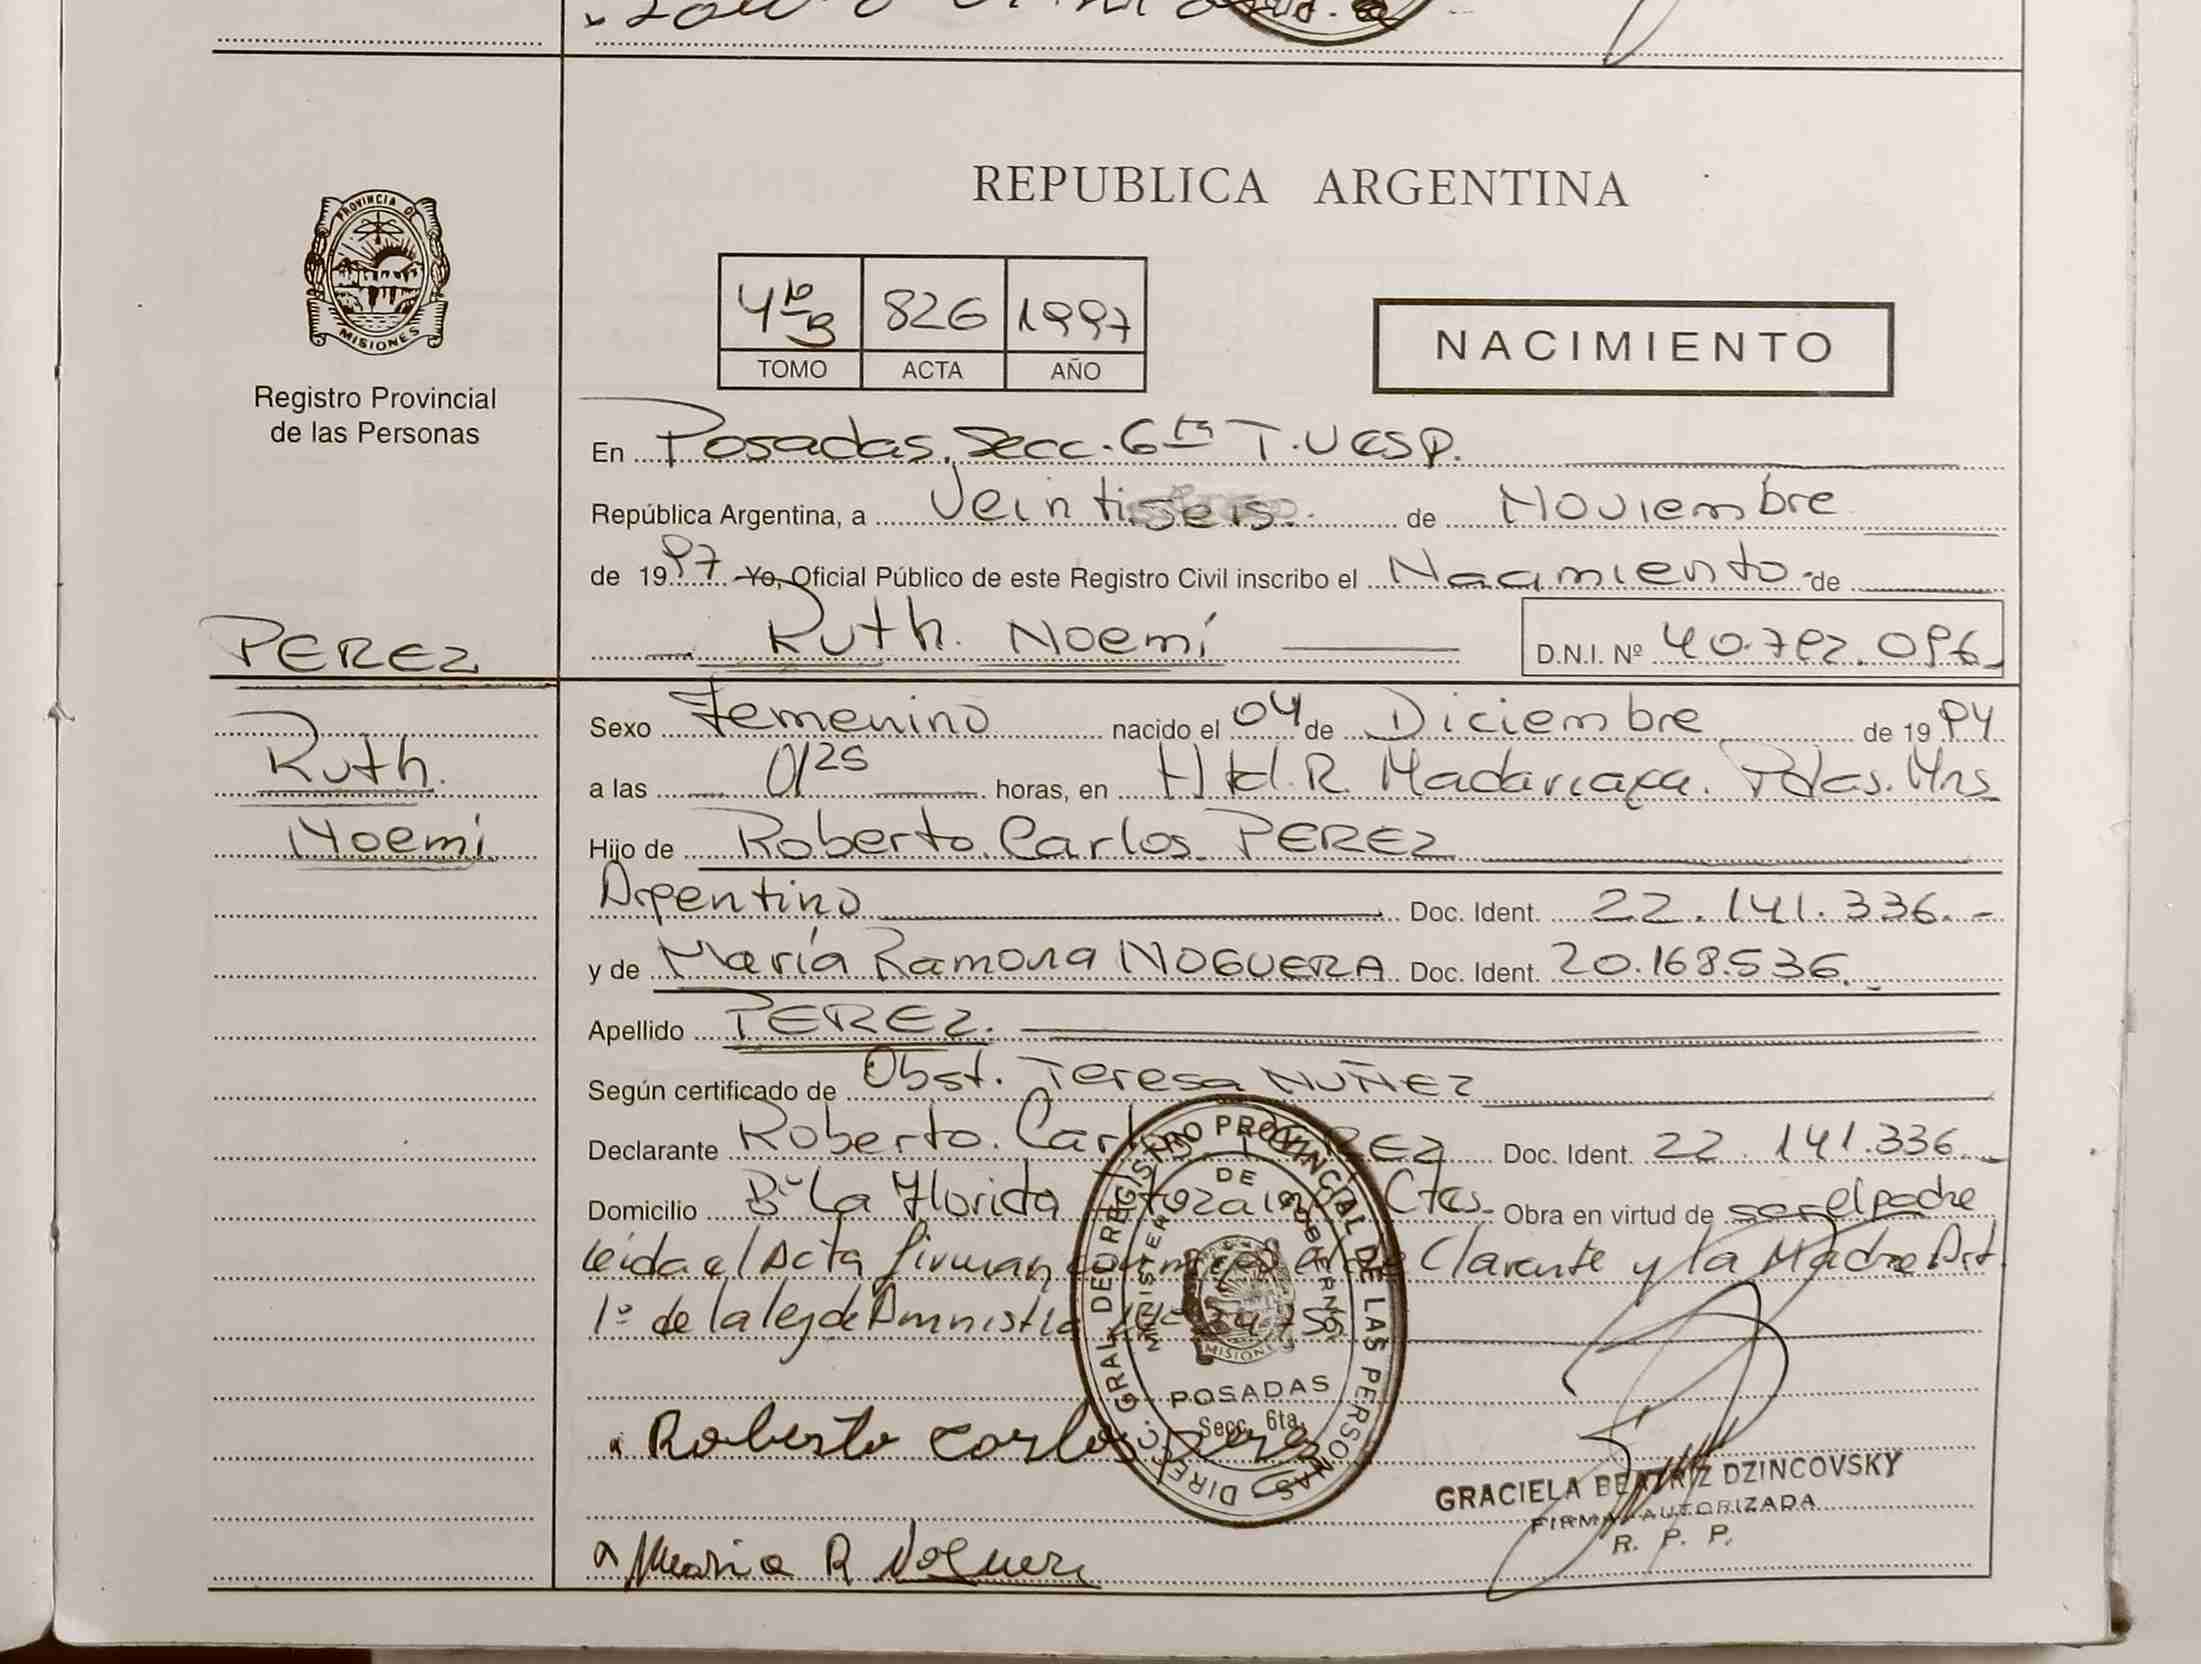 REPUBLICA ARGENTINA
PROVINCIA DE
MISIONES
Registro Provincial
de las Personas
4to B 826 1997
TOMO ACTA AÑO
NACIMIENTO
En Posadas, Secc. 6ta T.
República Argentina, a Veintiseis de Noviembre
de 1997 Yo, Oficial Público de este Registro Civil inscribo el Nacimiento de
Ruth Noemí D.N.I. Nº 40.792.096
PEREZ
Ruth
Noemí
Sexo Femenino nacido el 04 de Diciembre de 1994
a las 0/25 horas, en R. Madariaga. Pdas. Mns
Hijo de Roberto Carlos PEREZ
Argentino Doc. Ident. 22.141.336.-
y de María Ramona NOGUERA Doc. Ident. 20.168.536.-
Apellido PEREZ.
Según certificado de Obst. Teresa NUÑEZ
Declarante Roberto Carlos PEREZ Doc. Ident. 22.141.336.-
Domicilio Bº La Florida Ctes. Obra en virtud de ser el padre
leida el Acta firman conmigo el de Clarante y la Madre Art.
1º de la ley de Amnistia
DIRECC. GRAL. DE REGISTRO PROVINCIAL DE LAS PERSONAS
MINISTERIO DE GOBIERNO
MISIONES
POSADAS
Secc. 6ta.
Roberto Carlos Perez
GRACIELA BEATRIZ DZINCOVSKY
FIRMA AUTORIZADA
R. P. P.
Maria R Noguera